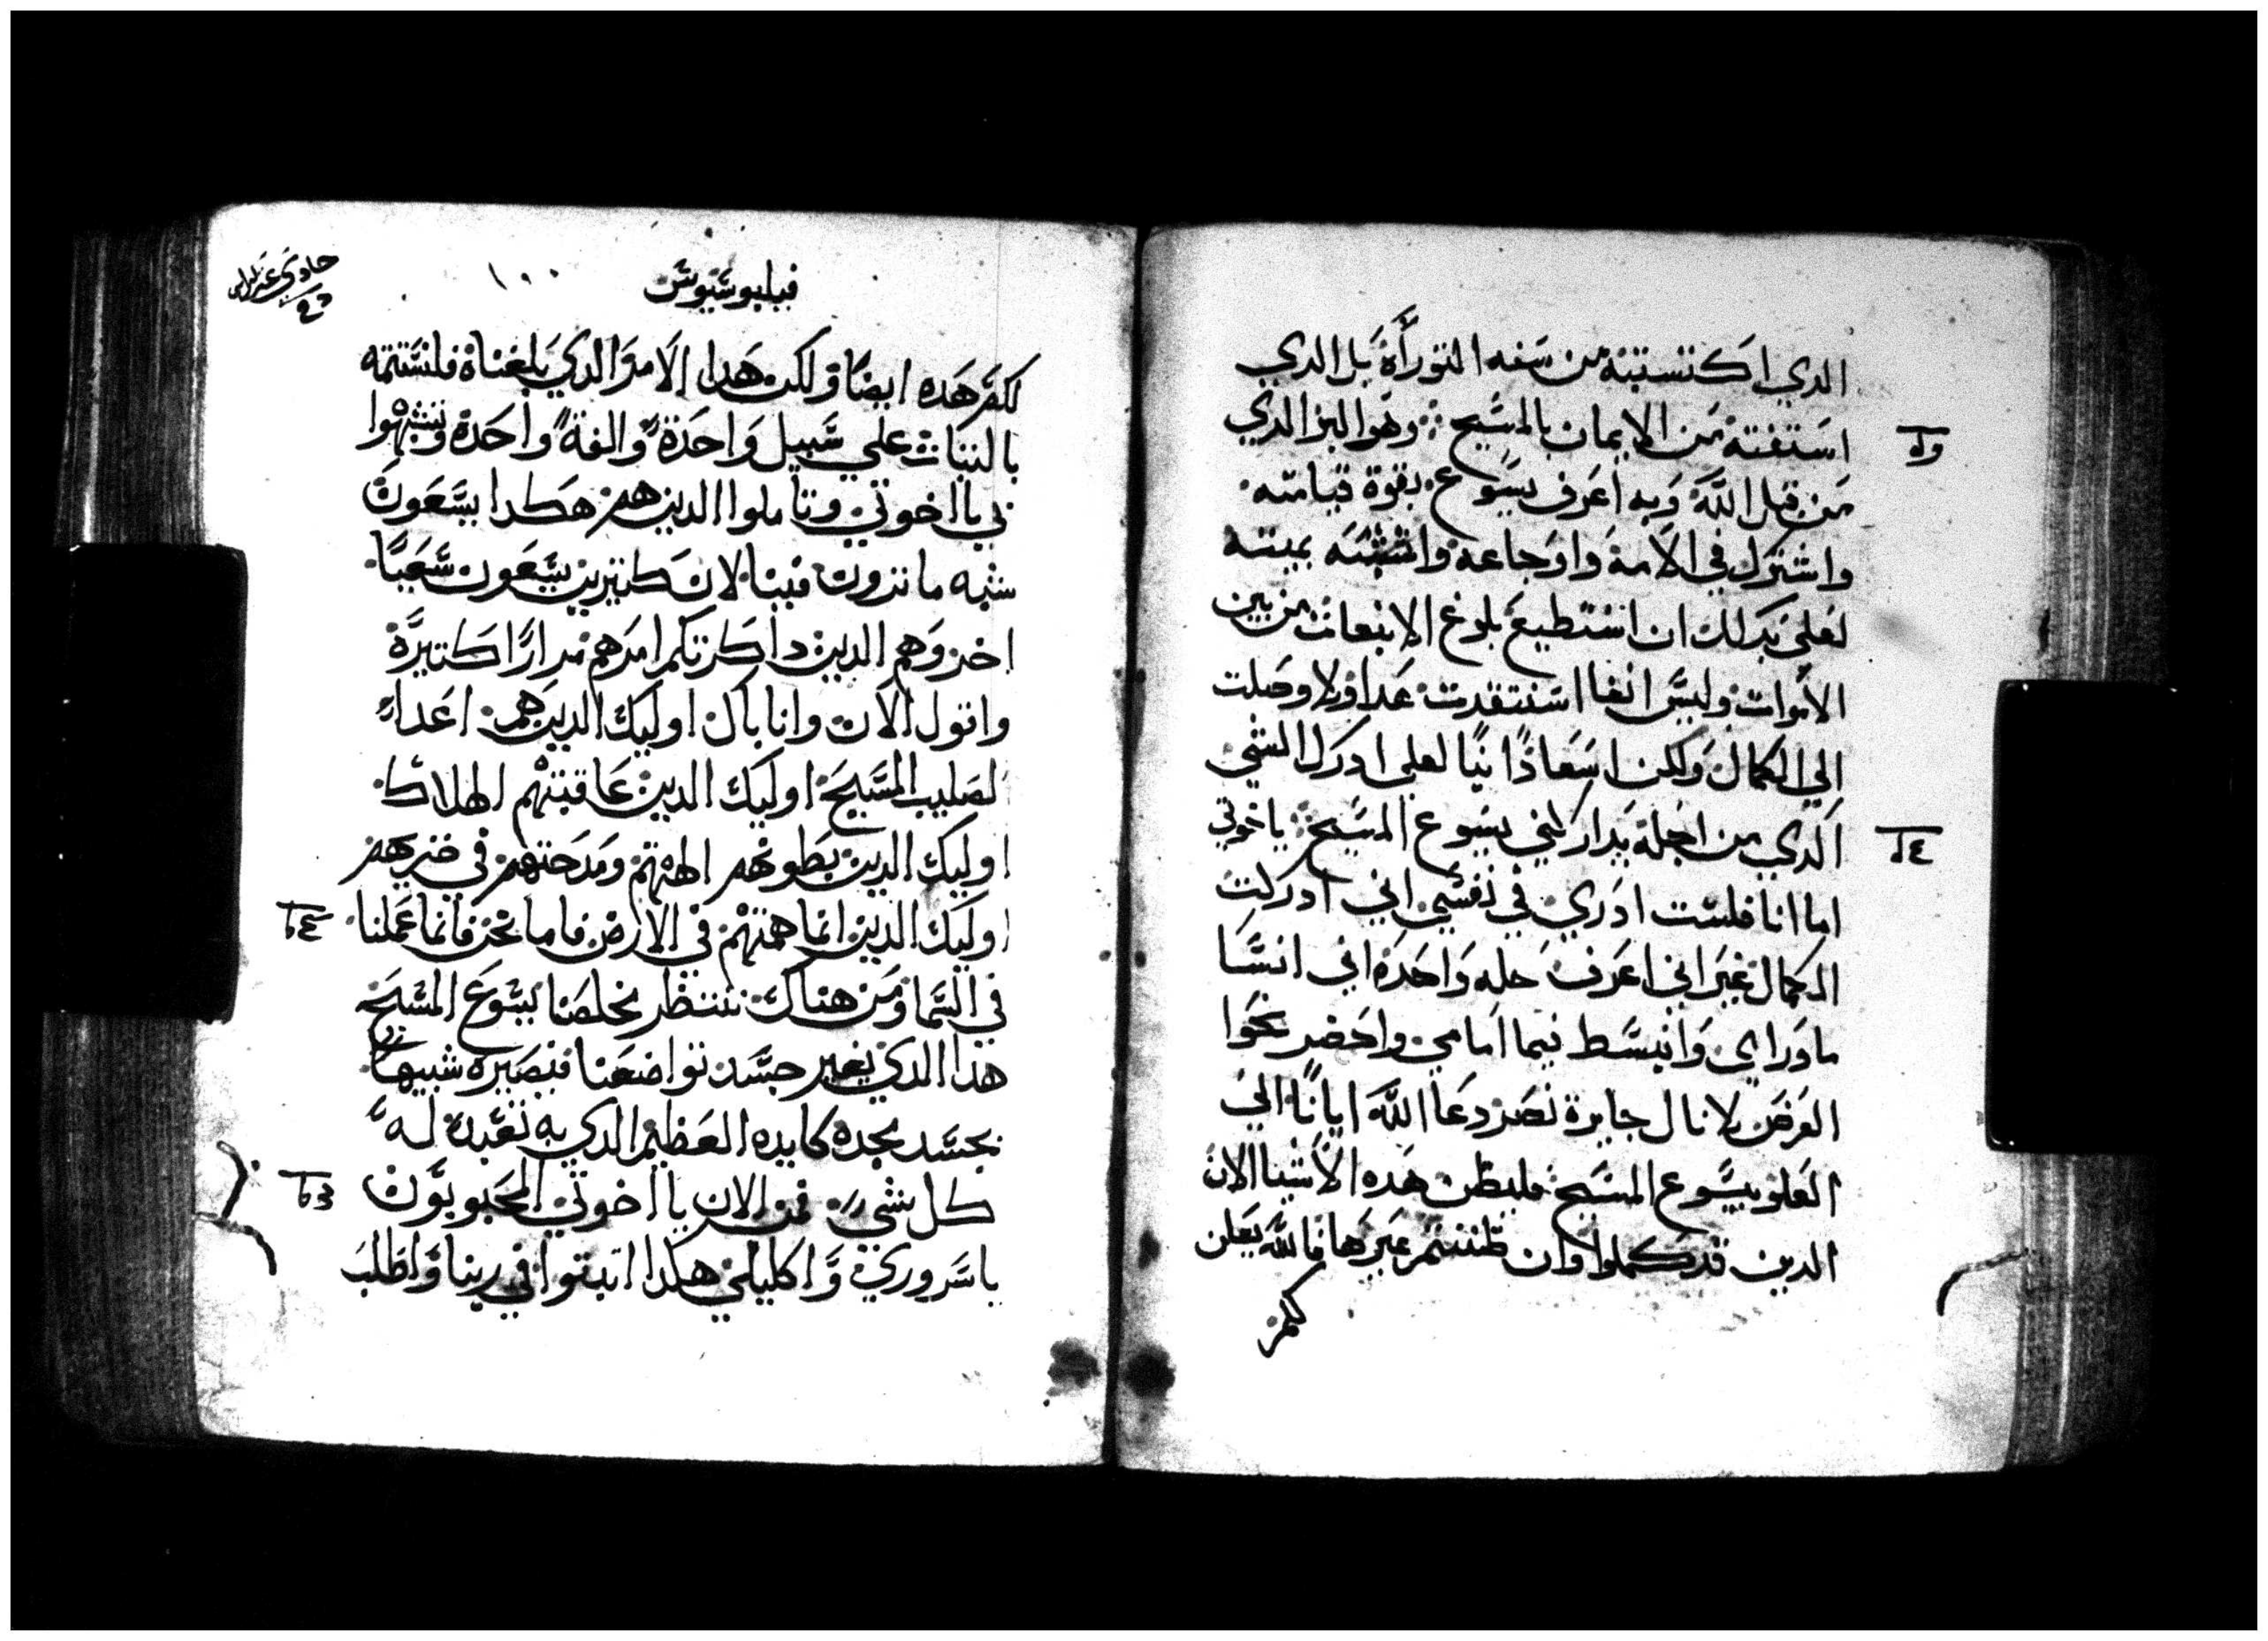 الدي اكتستبته من سنه التورأة بل الدي
استفتة من الايمان بالمسيح ؛ وهو البر الدي
من قبل الله وبه اعرف يسوع بقوة قيامته
واشترك في الامة واوجاعه واتشبه بميتته
لعلي بدلك ان استطيع بلوغ الانبعات من بين
الاموات وليس انفا استقدت هدا ولا وصلت
الي الكمال ولكن اسعا دانيا لعلي ادرك الشي
الدي من اجله تداركني يسوع المسيح ؛ ياخوتي
اما انا فلست ادري في نفسي اني ادركت
الكمال غير اني اعرف خله واحدة اني انسا
ما وراي وانبسط فيما امامي واحضر نحوا
الغرض لانال جايزة نصر دعا الله ايانا الي
العلو بيسوع المسيح فليظن هده الاشيا الان
الدين قد كملوا وان ظننتم غيرها فالله يعلن
لكم
فيليبوسيوس
١٠٠
لكم هده ايضا ولكن هدا الامر الدي بلغناة فلنستتمه
بالتبات علي سبيل واحدة والفة واحدة وتشبهوا
بي يا اخوتي وتاملوا الدين هم هكدا يسعون
شبه ما ترون فينا لان كتيرين يسعون سعيا
اخر وهم الدين داكرتكم امرهم مرارا كتيرة
واقول الان وانا باك اوليك الدين هم اعدا
لصليب المسيح اوليك الدين عاقبتهم الهلاك
اوليك الدين بطونهم الهتهم ومدحتهم في خزيهم
اوليك الدين انما همتهم في الارض فاما نحن فانما عملنا
في السما ومن هناك ننتظر مخلصنا يسوع المسيح
هدا الدي يغير جسد تواضعنا فيصيره شبيها
بجسد مجده كايده العظيم الدي به تعبد له
كل شي فمن الان يا اخوتي المحبوبون
ياسروري واكليلي هكدا اتبتوا في ربنا واطلب